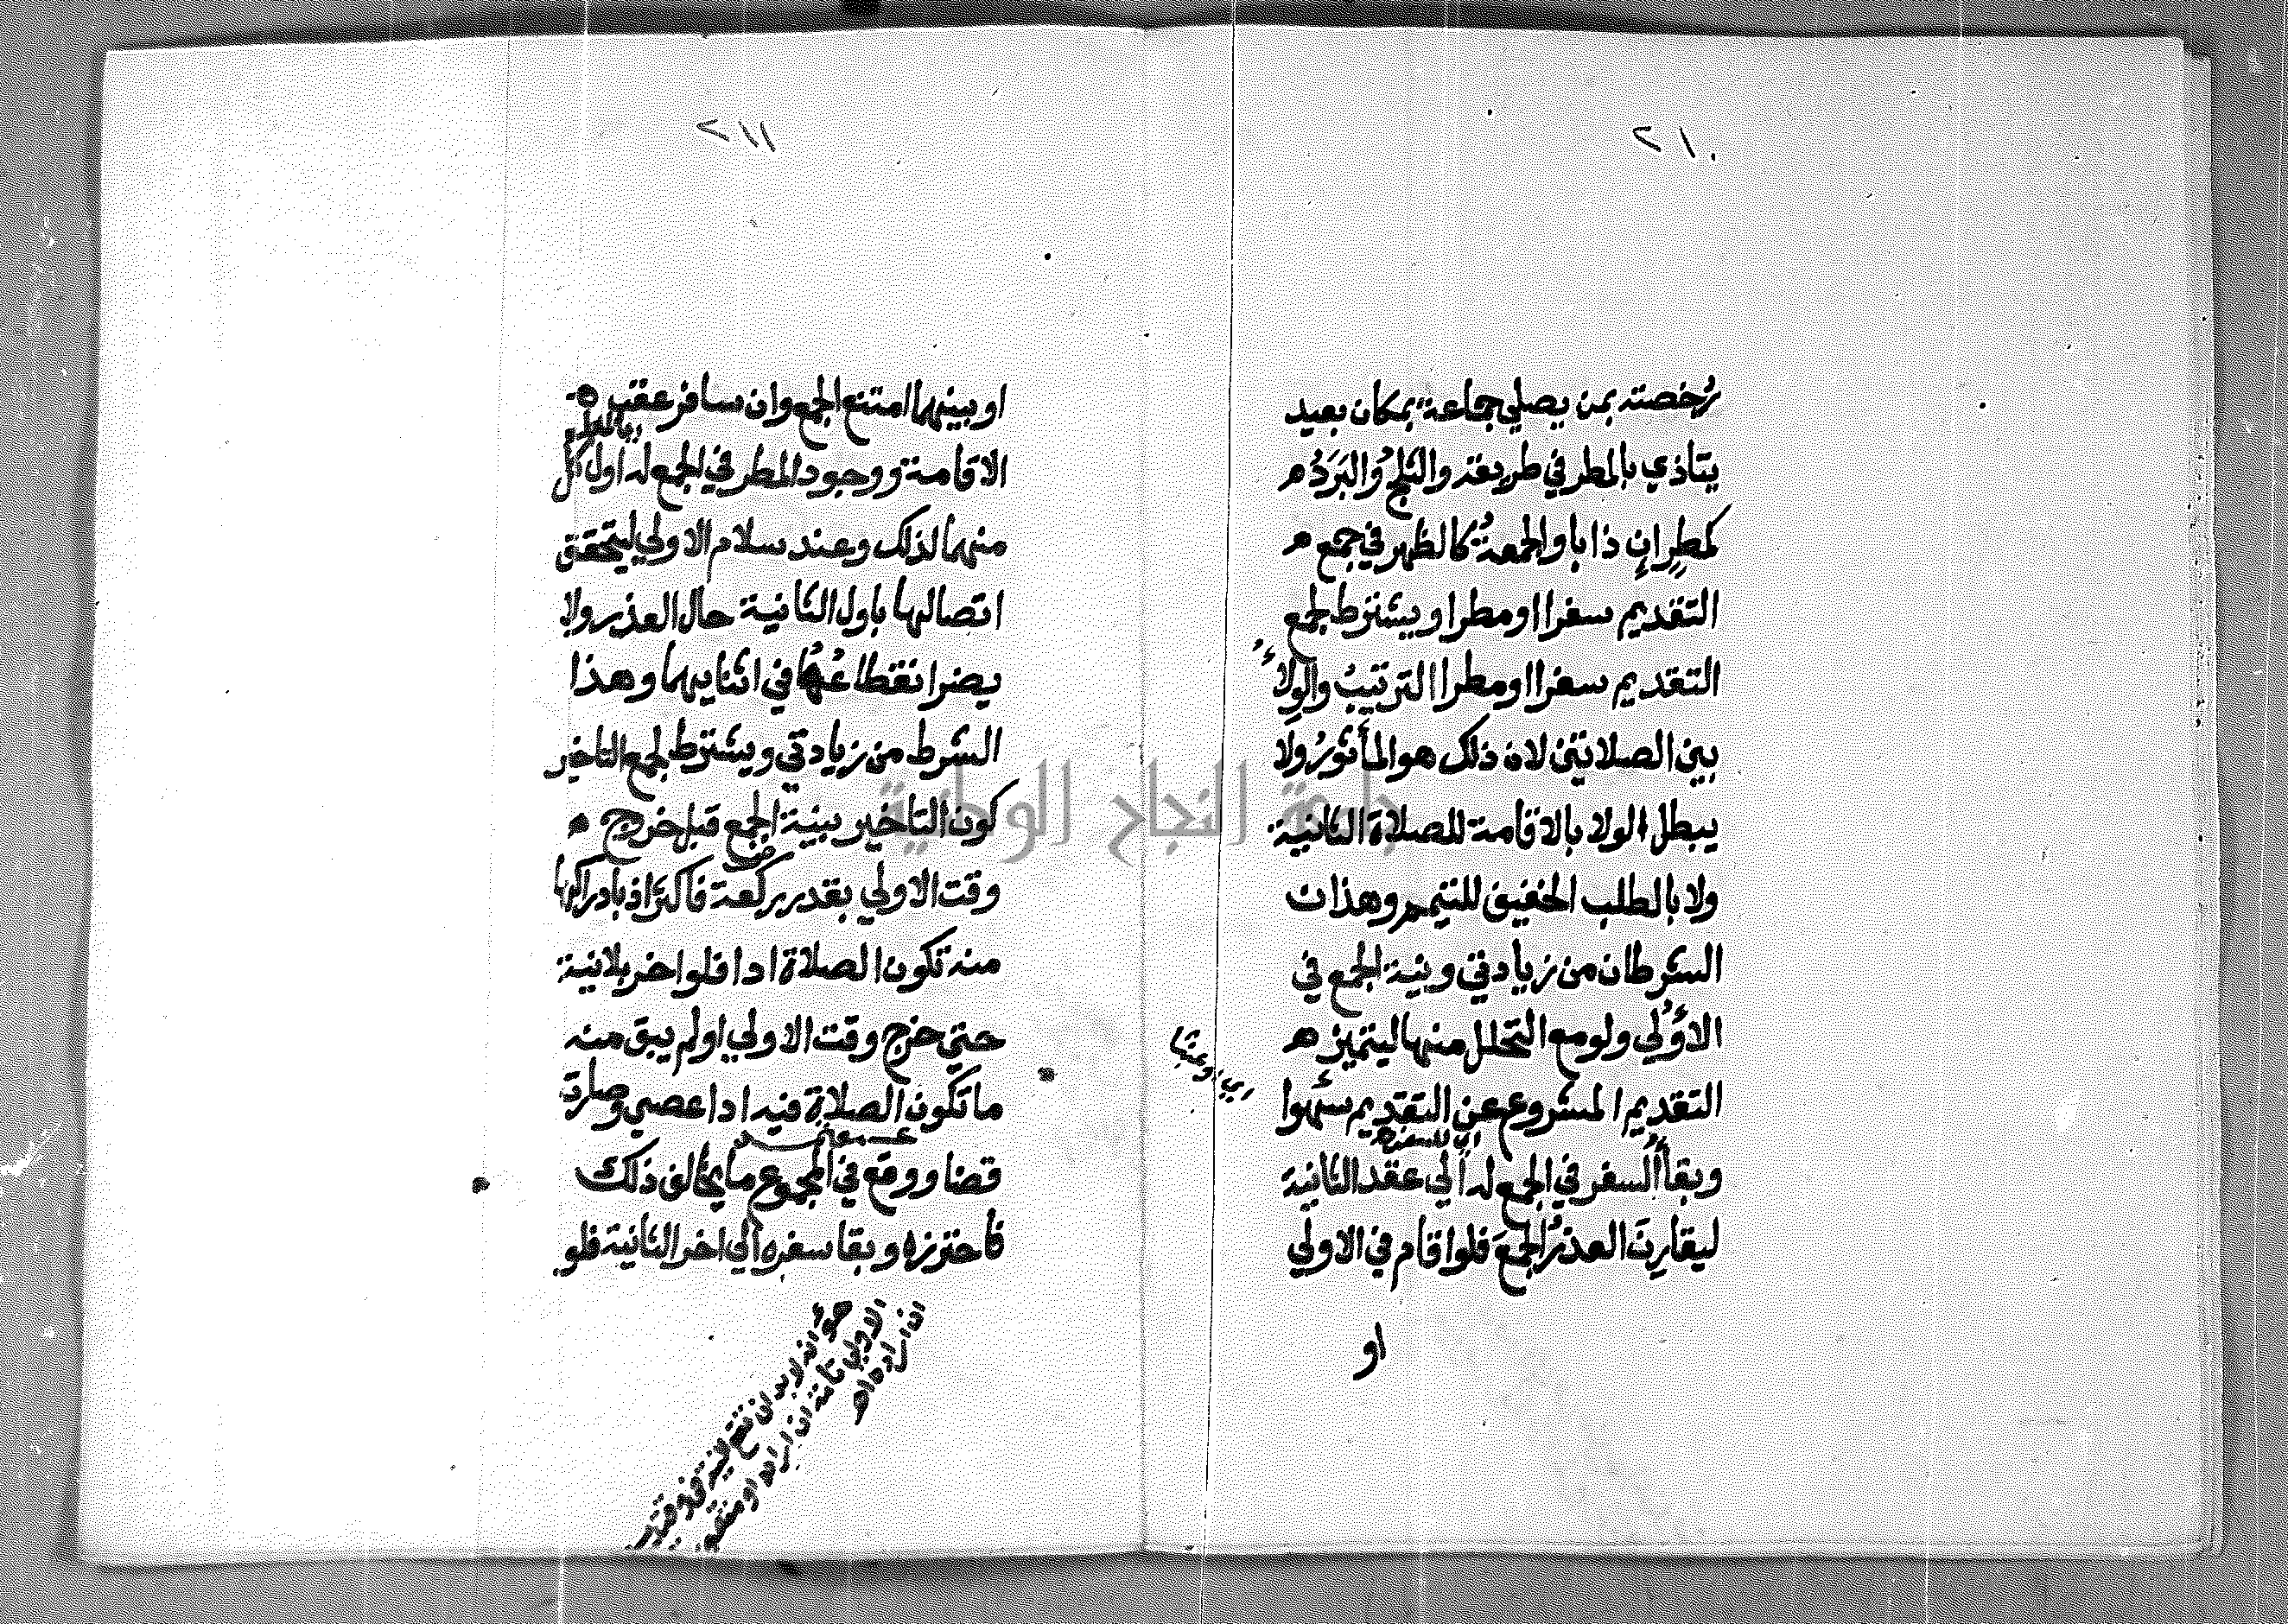 ٢١٠
رخصته بمن يصلي جماعة بمكان بعيد
يتاذي بالمطر في طريقه والثلجُ والبَرَدُ م
كمطرٍ إن ذابا والجمعةُ كالظهر في جمع م
التقديم سفرا او مطرا ويشترط لجمع
التقديم سفرا او مطرا الترتيبُ والوِلاءُ
بين الصلاتين لان ذلك هو المأثورُ ولا
يبطل الولا بالاقامة للصلاة الثانية
ولا بالطلب الخفيف للتيمم وهذان
الشرطان من زيادتي ونية الجمع في
الأُولي ولو مع التحلل منها ليتميز م
التقديم المشروع عن التقديم سهوا
اي او عبثا
اي للسفر
وبقأُ السفر في الجمع له الي عقد الثانية
ليقارِنَ العذرُ الجمعَ فلو اقام في الاولي
او
٢١١
او بينهما امتنع الجمع وان سافر عقب
الاقامة ووجود المطر في الجمع له اول كل
منهما لذلك وعند سلام الاولي ليتحقق
اتصالها باول الثانية حال العذر ولا
يضر انقطاعُهُ في اثنايهما وهذا
الشرط من زيادتي ويشترط لجمع التاخير
كون التاخير بنية الجمع قبل خروج م
وقت الاولي بقدر ركعة فاكثر اذ بادراكها
منه تكون الصلاة ادا فلو اخر بلا نية
حتي خرج وقت الاولي او لم يبق منه
ما تكون الصلاة فيه ادا عصي وصارت
قضا ووقع في المجموع ما يخالف ذلك
فاحترزه وبقا سفره الي اخر الثانية فلو
انه لا بد ان تقع النية قدر
الاولي تامة ان اراد او
ان اراده اه
جامعة النجاح الوطنية